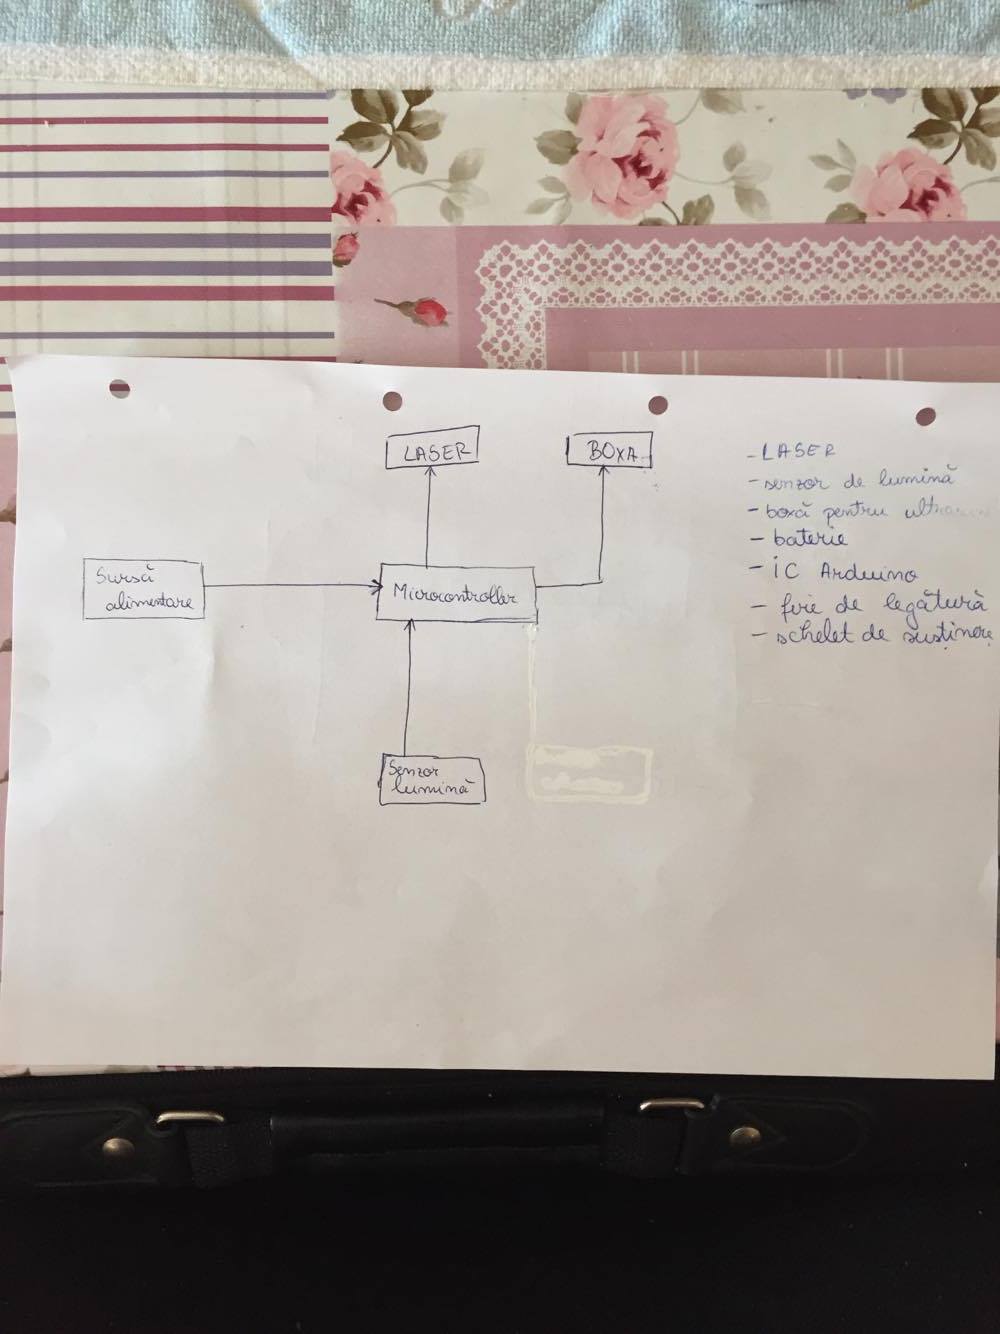 LASER
BOXA
Sursă
alimentare
Microcontroller
Senzor
lumină
- LASER
- senzor de lumină
- boxă pentru
- baterie
- IC Arduino
- fire de legătură
- schelet de susținere